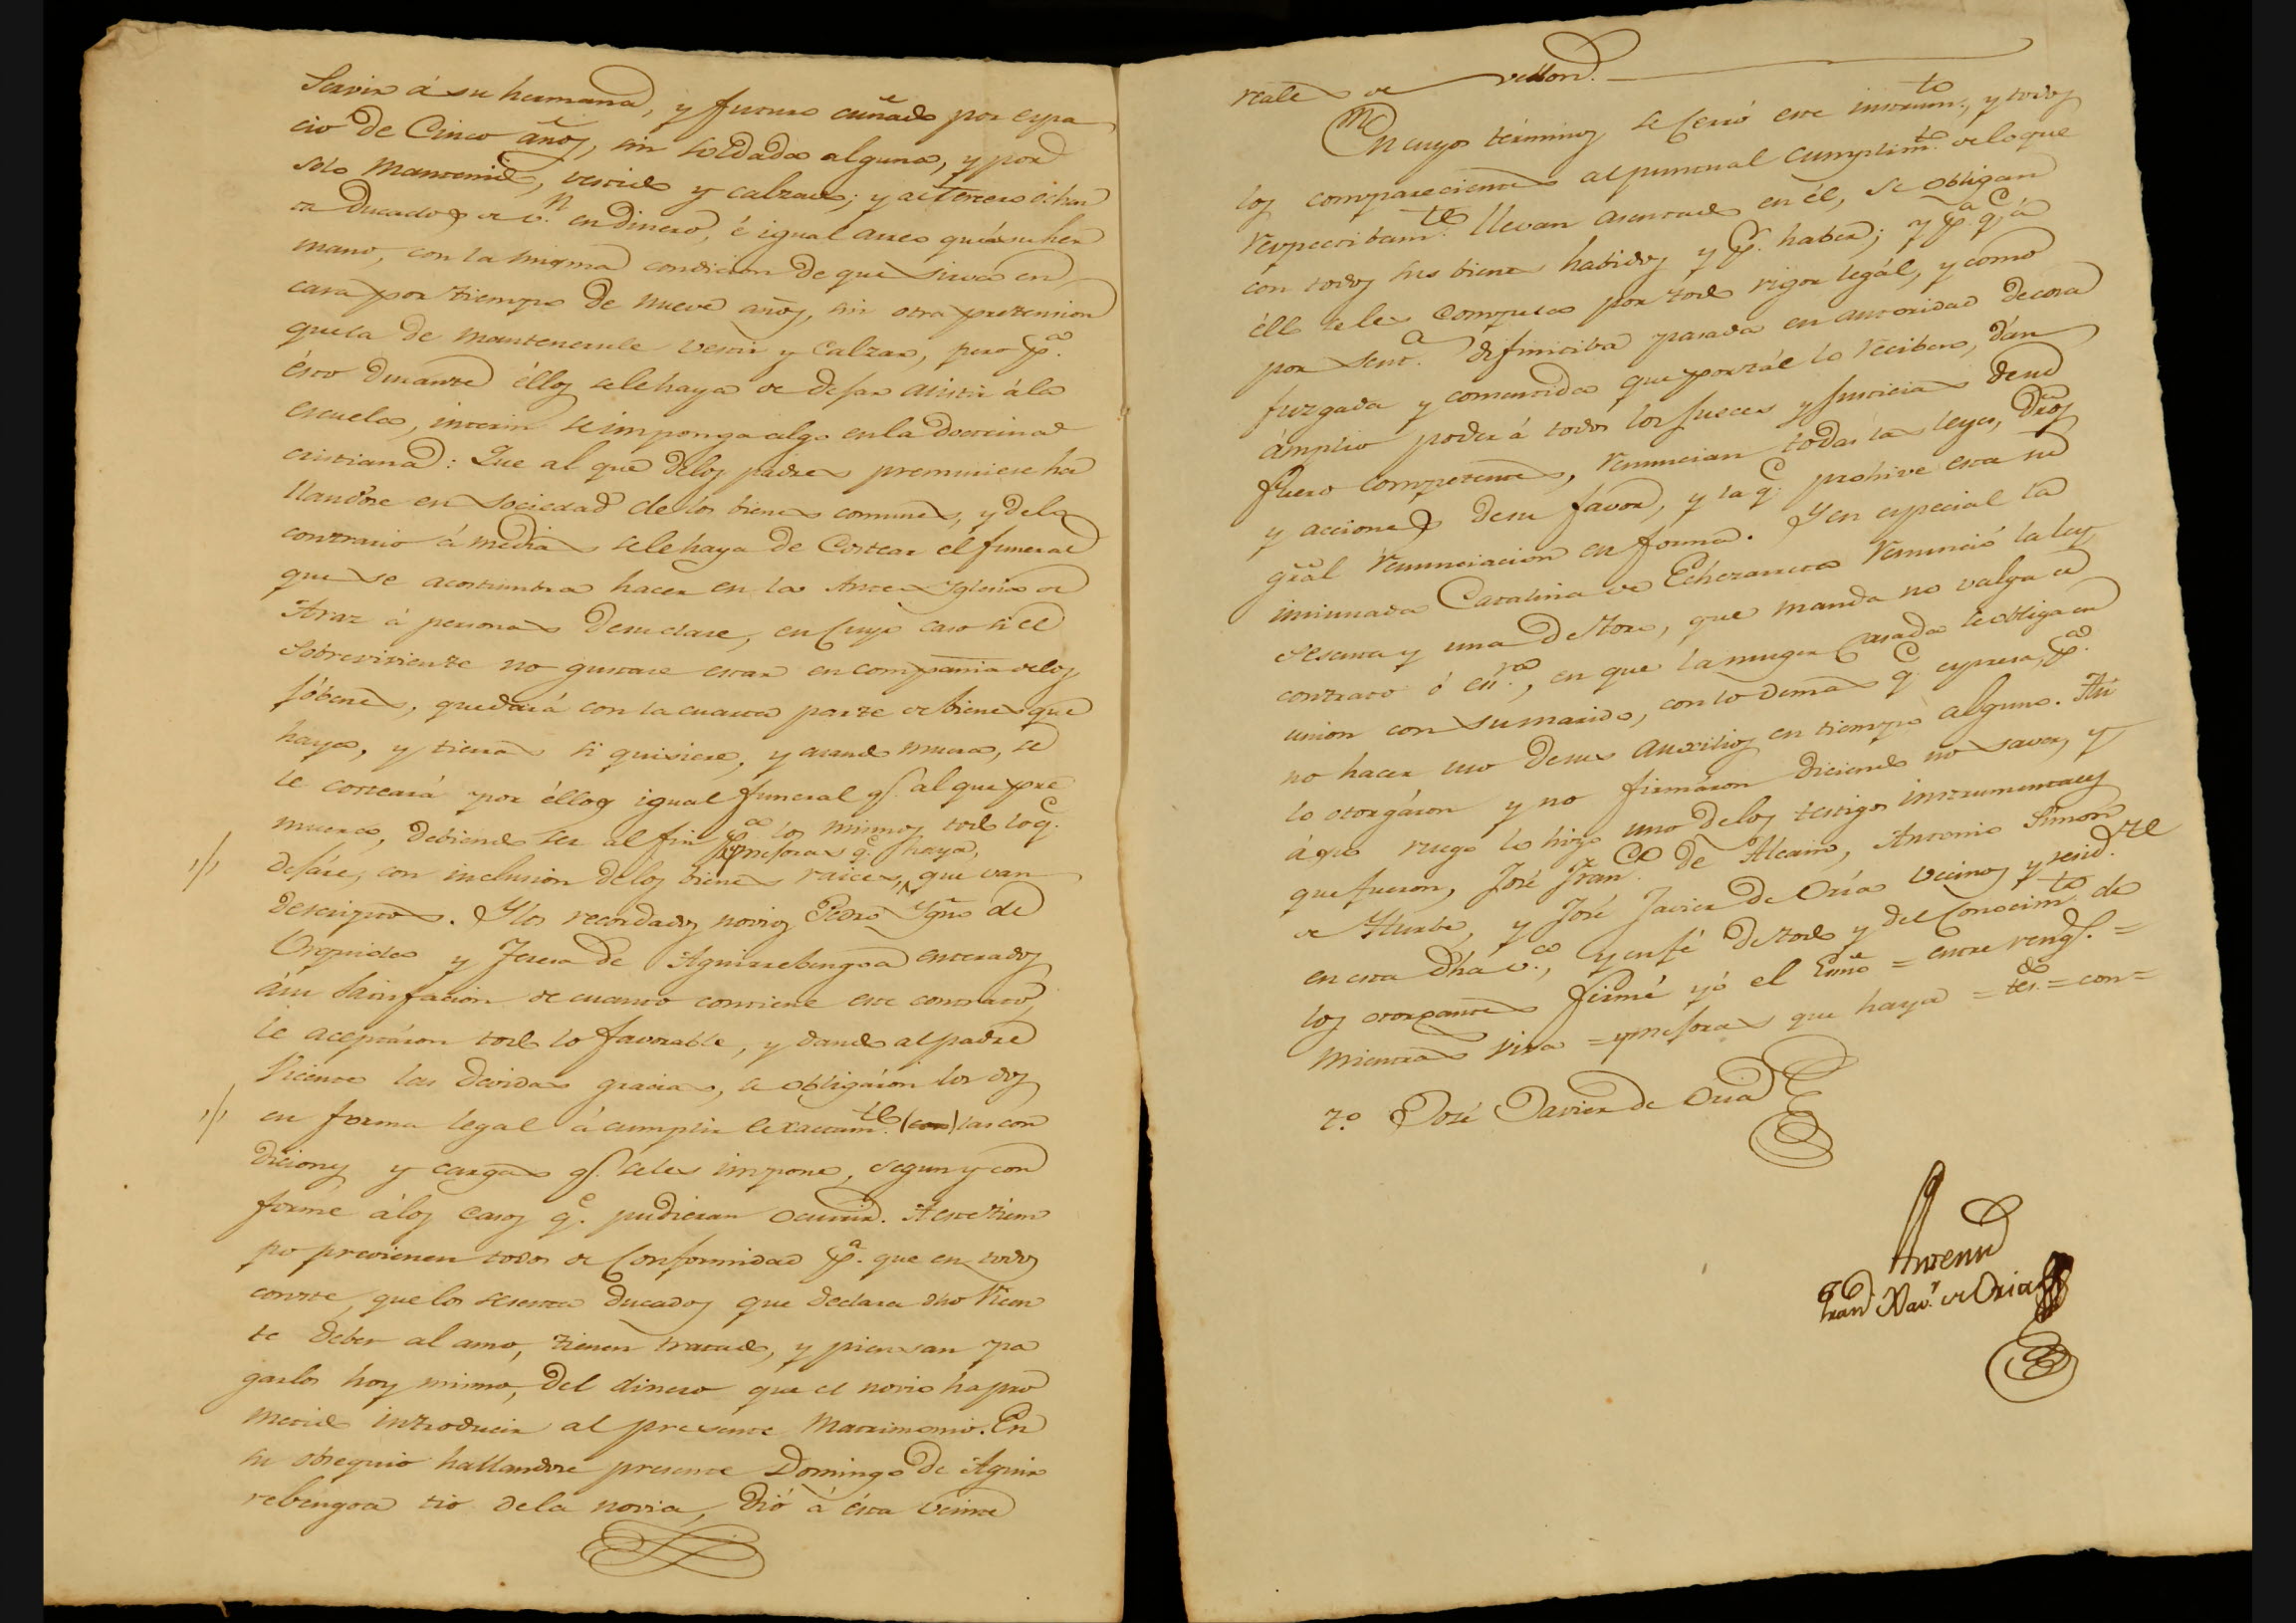 Servir á su hermana, y futuro cuñado por espa
cio de Cinco años, sin soldada alguna, y por
solo mantenido, vestido y calzado; y al Tercero ochen
ta Ducados de v.n en dinero, é igual arreo que á su her
mano, con la misma condicion de que sirva en
casa por tiempo de nueve años, sin otra pretension
que la de mantenerle vestir y calzar, pero p.a
ésto durante éllos se le haya de dejar asistir á la
escuela, interin se imponga algo en la doctrina
cristiana: Que al que de los padres premuriese ha
llandose en sociedad de los bienes comunes, y de lo
contrario á medias se le haya de Costear el funeral
que se acostumbra hacer en la Ante Yglesia de
Araz á personas de su clase, en cuyo caso si el
Sobreviviente no gustase estar en compañia de los
jóbenes, quedará con la cuarta parte de bienes que
haya, y tierras si quisiere, y cuando muera, se
le costeará por éllos igual funeral q.e al que pre
muera, debiendo ser al fin p.a los mismos todo lo q.e
ymejoras q.e haya,
dejáre, con inclusion de los bienes raices, que van
descriptos. Y los recordados novios Pedro Ygn.o de
Urquidea y Teresa de Aguirrebengoa enterados
á su satisfacion de cuanto contiene este contrato,
le aceptáron todo lo favorable, y dando al padre
Vicente las devidas gracias, se obligáron los dos
en forma legal á cumplir exactam.te (con) las con
diciones y cargas q.e se les impone, segun y con
forme á los casos q.e pudieran ocurrir. A este tiem
po previenen todos de Conformidad p.a que en todos
conste, que los sesenta Ducados que declara dho Vicen
te deber al amo, tienen tratado, y piensan pa
garlos hoy mismo, del dinero que el novio ha pro
metido introducir al presente Matrimonio. En
su obsequio hallandose presente Domingo de Aguir
rebengoa tio de la novia, dió á ésta veinte
reales de vellon.
En cuyos términos se cerró este instrum.to, y todos
los comparecientes al puntual cumplim.to de lo que
respectibam.te llevan asentado en él, se obligan
con todos sus bienes habidos y p.r haber; y p.a q.e á
éllo se les compela por todo rigor legál, y como
por sent.a difinitiba pasada en autoridad de cosa
juzgada y consentida que por tál lo reciben, dán
ámplio poder á todos los Jueces y Justicias de su
fuero competentes, renuncian todas las leyes, dros
y acciones de su favor, y la q.e prohive esta su
grál renunciacion en forma. Y en especial la
insinuada Catalina de Echezarreta renunció la ley
sesenta y una de Toro, que manda no valga el
contrato ó es.ra, en que la muger Casada se obliga en
union con su marido, con lo demas q.e espresa, p.a
no hacer uso de sus auxilios en tiempo alguno. Así
lo otorgáron y no firmáron diciendo no saver, y
á su ruego lo hizo uno de los testigos instrumentales
que fueron, José Fran.co de Alcain, Antonio Simon
de Yturbe, y José Javier de Oria vecinos y resid.tes
en esta dha v.a, y en fé de todo y del Conocim.to de
los otorgantes firmé yó el Esnō = entre reng.s =
mientras viva = ymejoras que haya = tes.do = con =
t.o José Javier de Oria
Antemi
Fran.co Xav.r de Oria